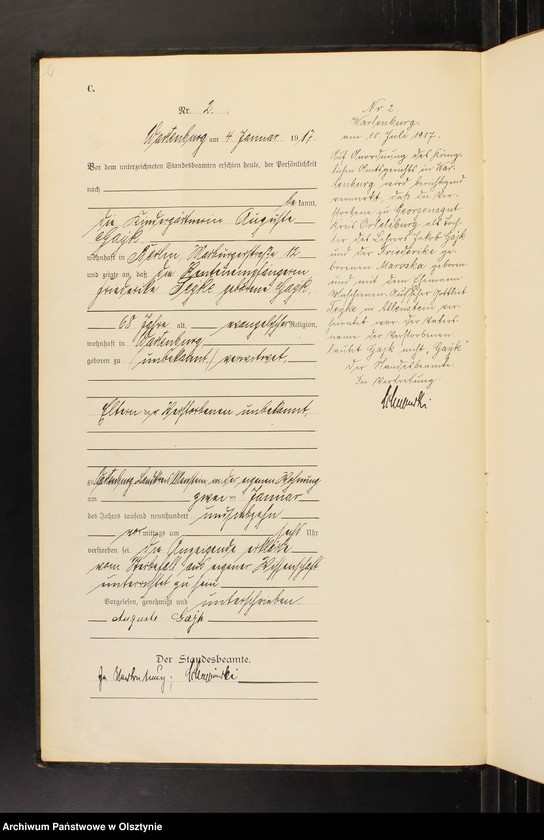 C.
Nr. 2.
Wartenburg am 4. Januar 1917.
Vor dem unterzeichneten Standesbeamten erschien heute, der Persönlichkeit
nach
bekannt,
die Kindergärtnerin Auguste
Gayk.
wohnhaft in Berlin, Marburgerstraße 12
und zeigte an, daß die Rentenempfängerin
Friederike geborene Gayk,
68 Jahre alt, evangelischer Religion,
wohnhaft in Wartenburg
geboren zu (unbekannt,) verwitwet,
Eltern der Verstorbenen unbekannt,
zu Wartenburg Landkreis Allenstein in der eigenen Wohnung
am zwei ten Januar
des Jahres tausend neunhundert undsiebzehn
vor mittags um sechs Uhr
verstorben sei. Die Anzeigende erklärte
vom Sterbefall aus eigener Wissenschaft
unterrichtet zu sein.
Vorgelesen, genehmigt und unterschrieben.
Auguste Gayk
Der Standesbeamte.
In Vertretung:
Nr 2
Wartenburg.
am 10 Juli 1917.
Auf Anordnung des König-
lichen Amtsgerichts in War-
tenburg wird berichtigend
vermerkt, daß die Ver-
storbene zu Georgensgut
Kreis Ortelsburg als Toch-
ter des Lehrers Jakob Gajk
und der Friederike ge-
borenen Maroska geboren
und mit dem Ehemann
Maschinen-Aufseher Gottlieb
in Allenstein ver-
heiratet war. Der Vaters-
name der Verstorbenen
lautet Gajk nicht „Gayk"
Der Standesbeamte
In Vertretung
Archiwum Państwowe w Olsztynie